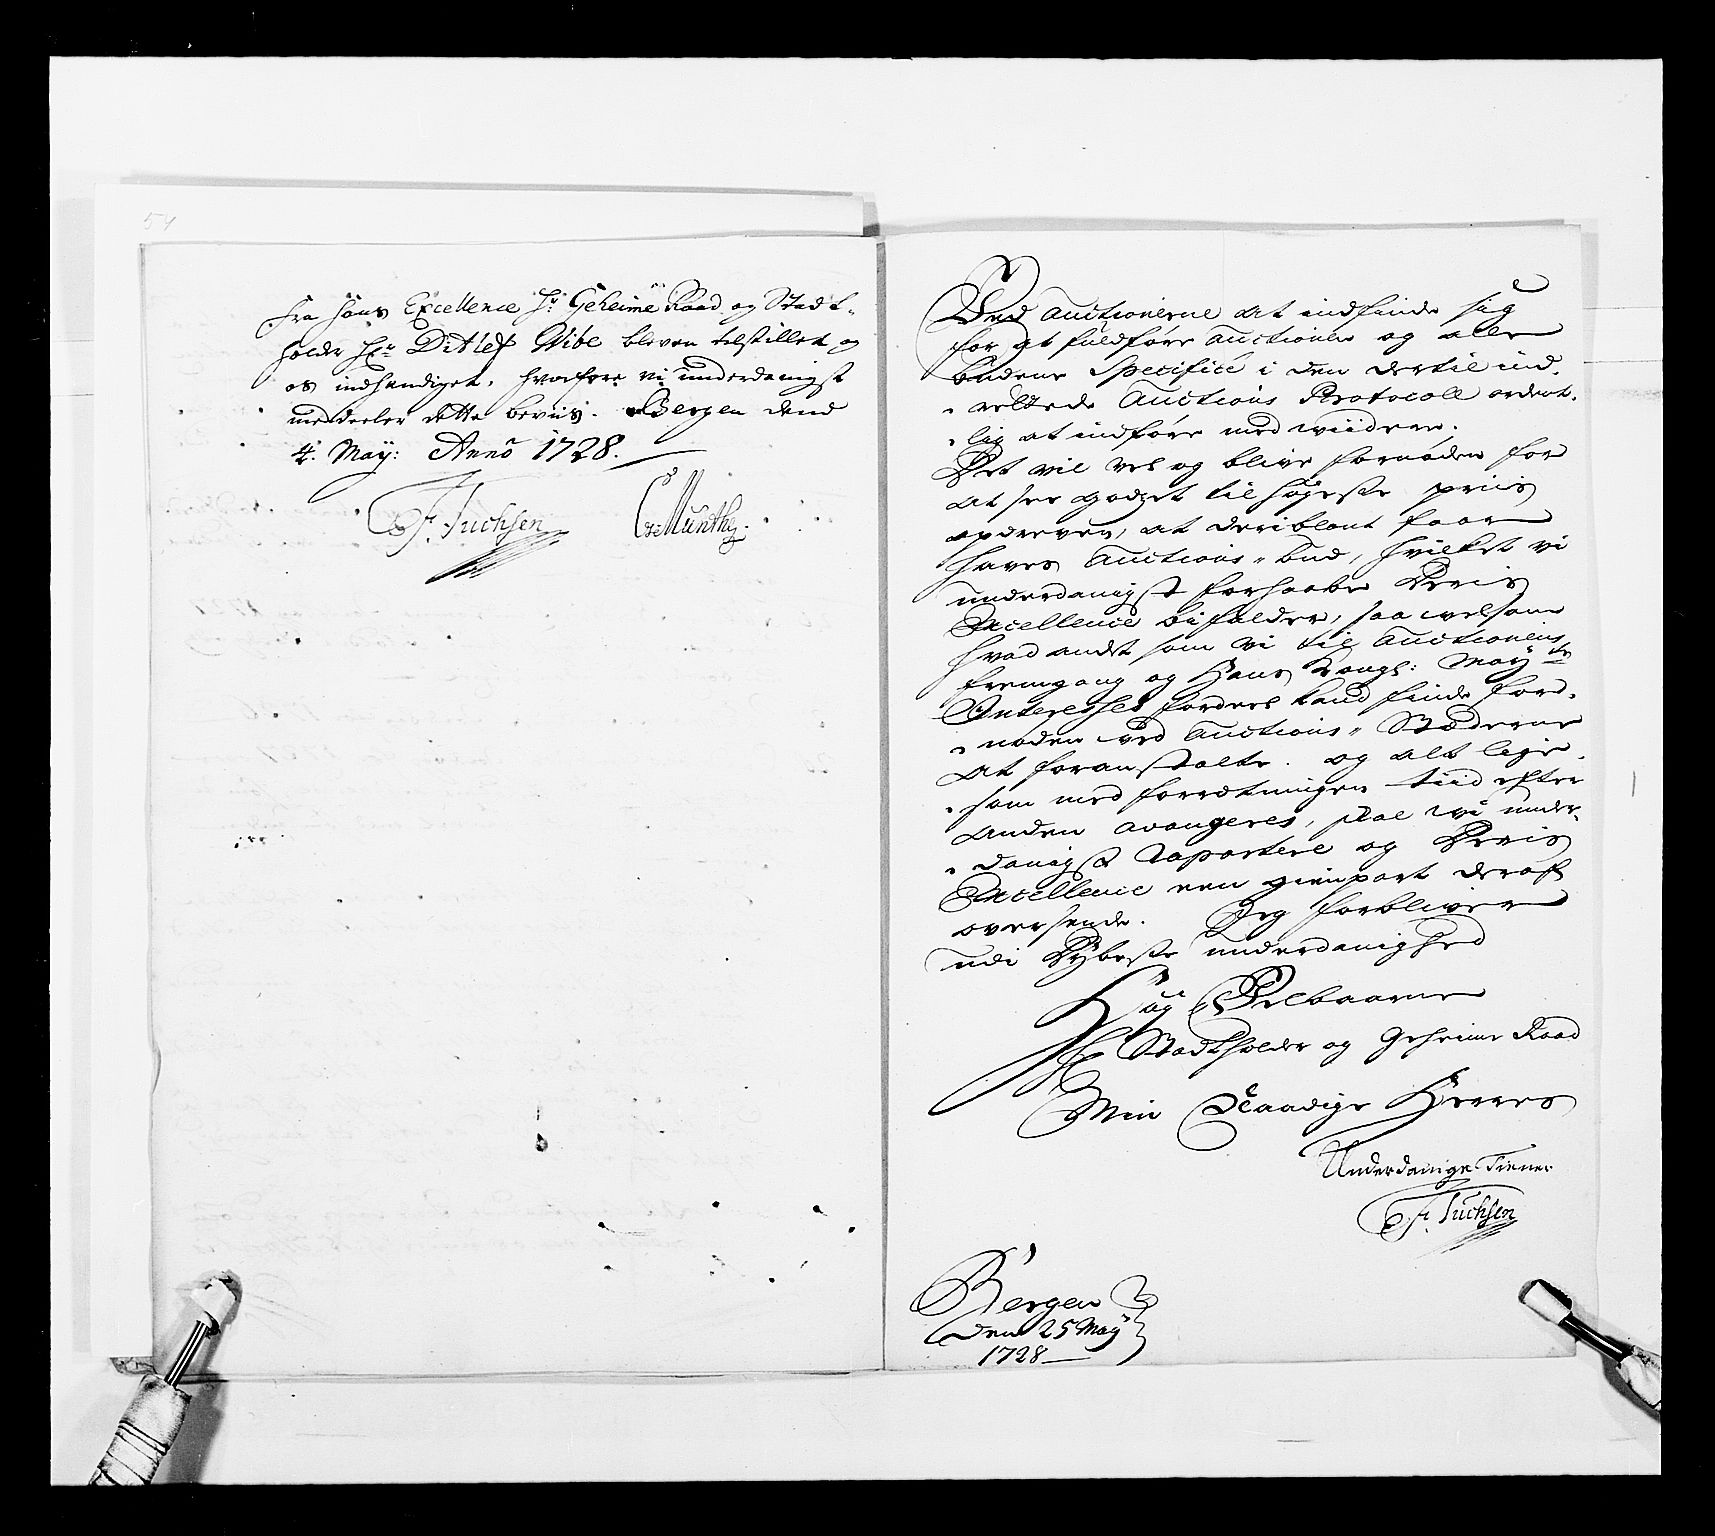 54
fra Hans Excellence Hr: Geheime Raad og Stadt-
holder Hr: Ditlef Wibe bleven tilstillet og
os indhendiget, hvorfore vi underdanigst
meddeeler dette beviis. Bergen dend
4. May: Anno 1728.
F. Tuchsen CMunthe.
Ved Auctionerne at indfinde sig
for at fuldføre Auctionen og alle
budene Specifice i den dertil ind-
rettede Auctions Protocoll ordent-
lig at indføre med viidere.
Det vil vel og blive fornøden for
at see godzet til høyeste priis
opdreven, at deriblant faar
haves Auctions-bud, hvilket vi
underdanigst forhaaber Deris
Excellence bifalder, saa velsom
hvad andet som vi til Auctionens
fremgang og Hans Kongl: May:ts
Interesses fordeel kand finde forn-
nøden ved Auctions-Stæderne
at foranstalte. og alt lige-
som med forretningen tiid efter
anden avangeres, skal vi under-
danigst Raportere og Deris
Excellence een gienpart deraf
oversende. Jeg forbliver
udi Dybeste underdanighed
Høy Velbaarne
Hr Stadtholder og Geheime Raad
Min Naadige Herres
Underdanige Tiener
F. Tuchsen
Bergen
den 25 May
1728